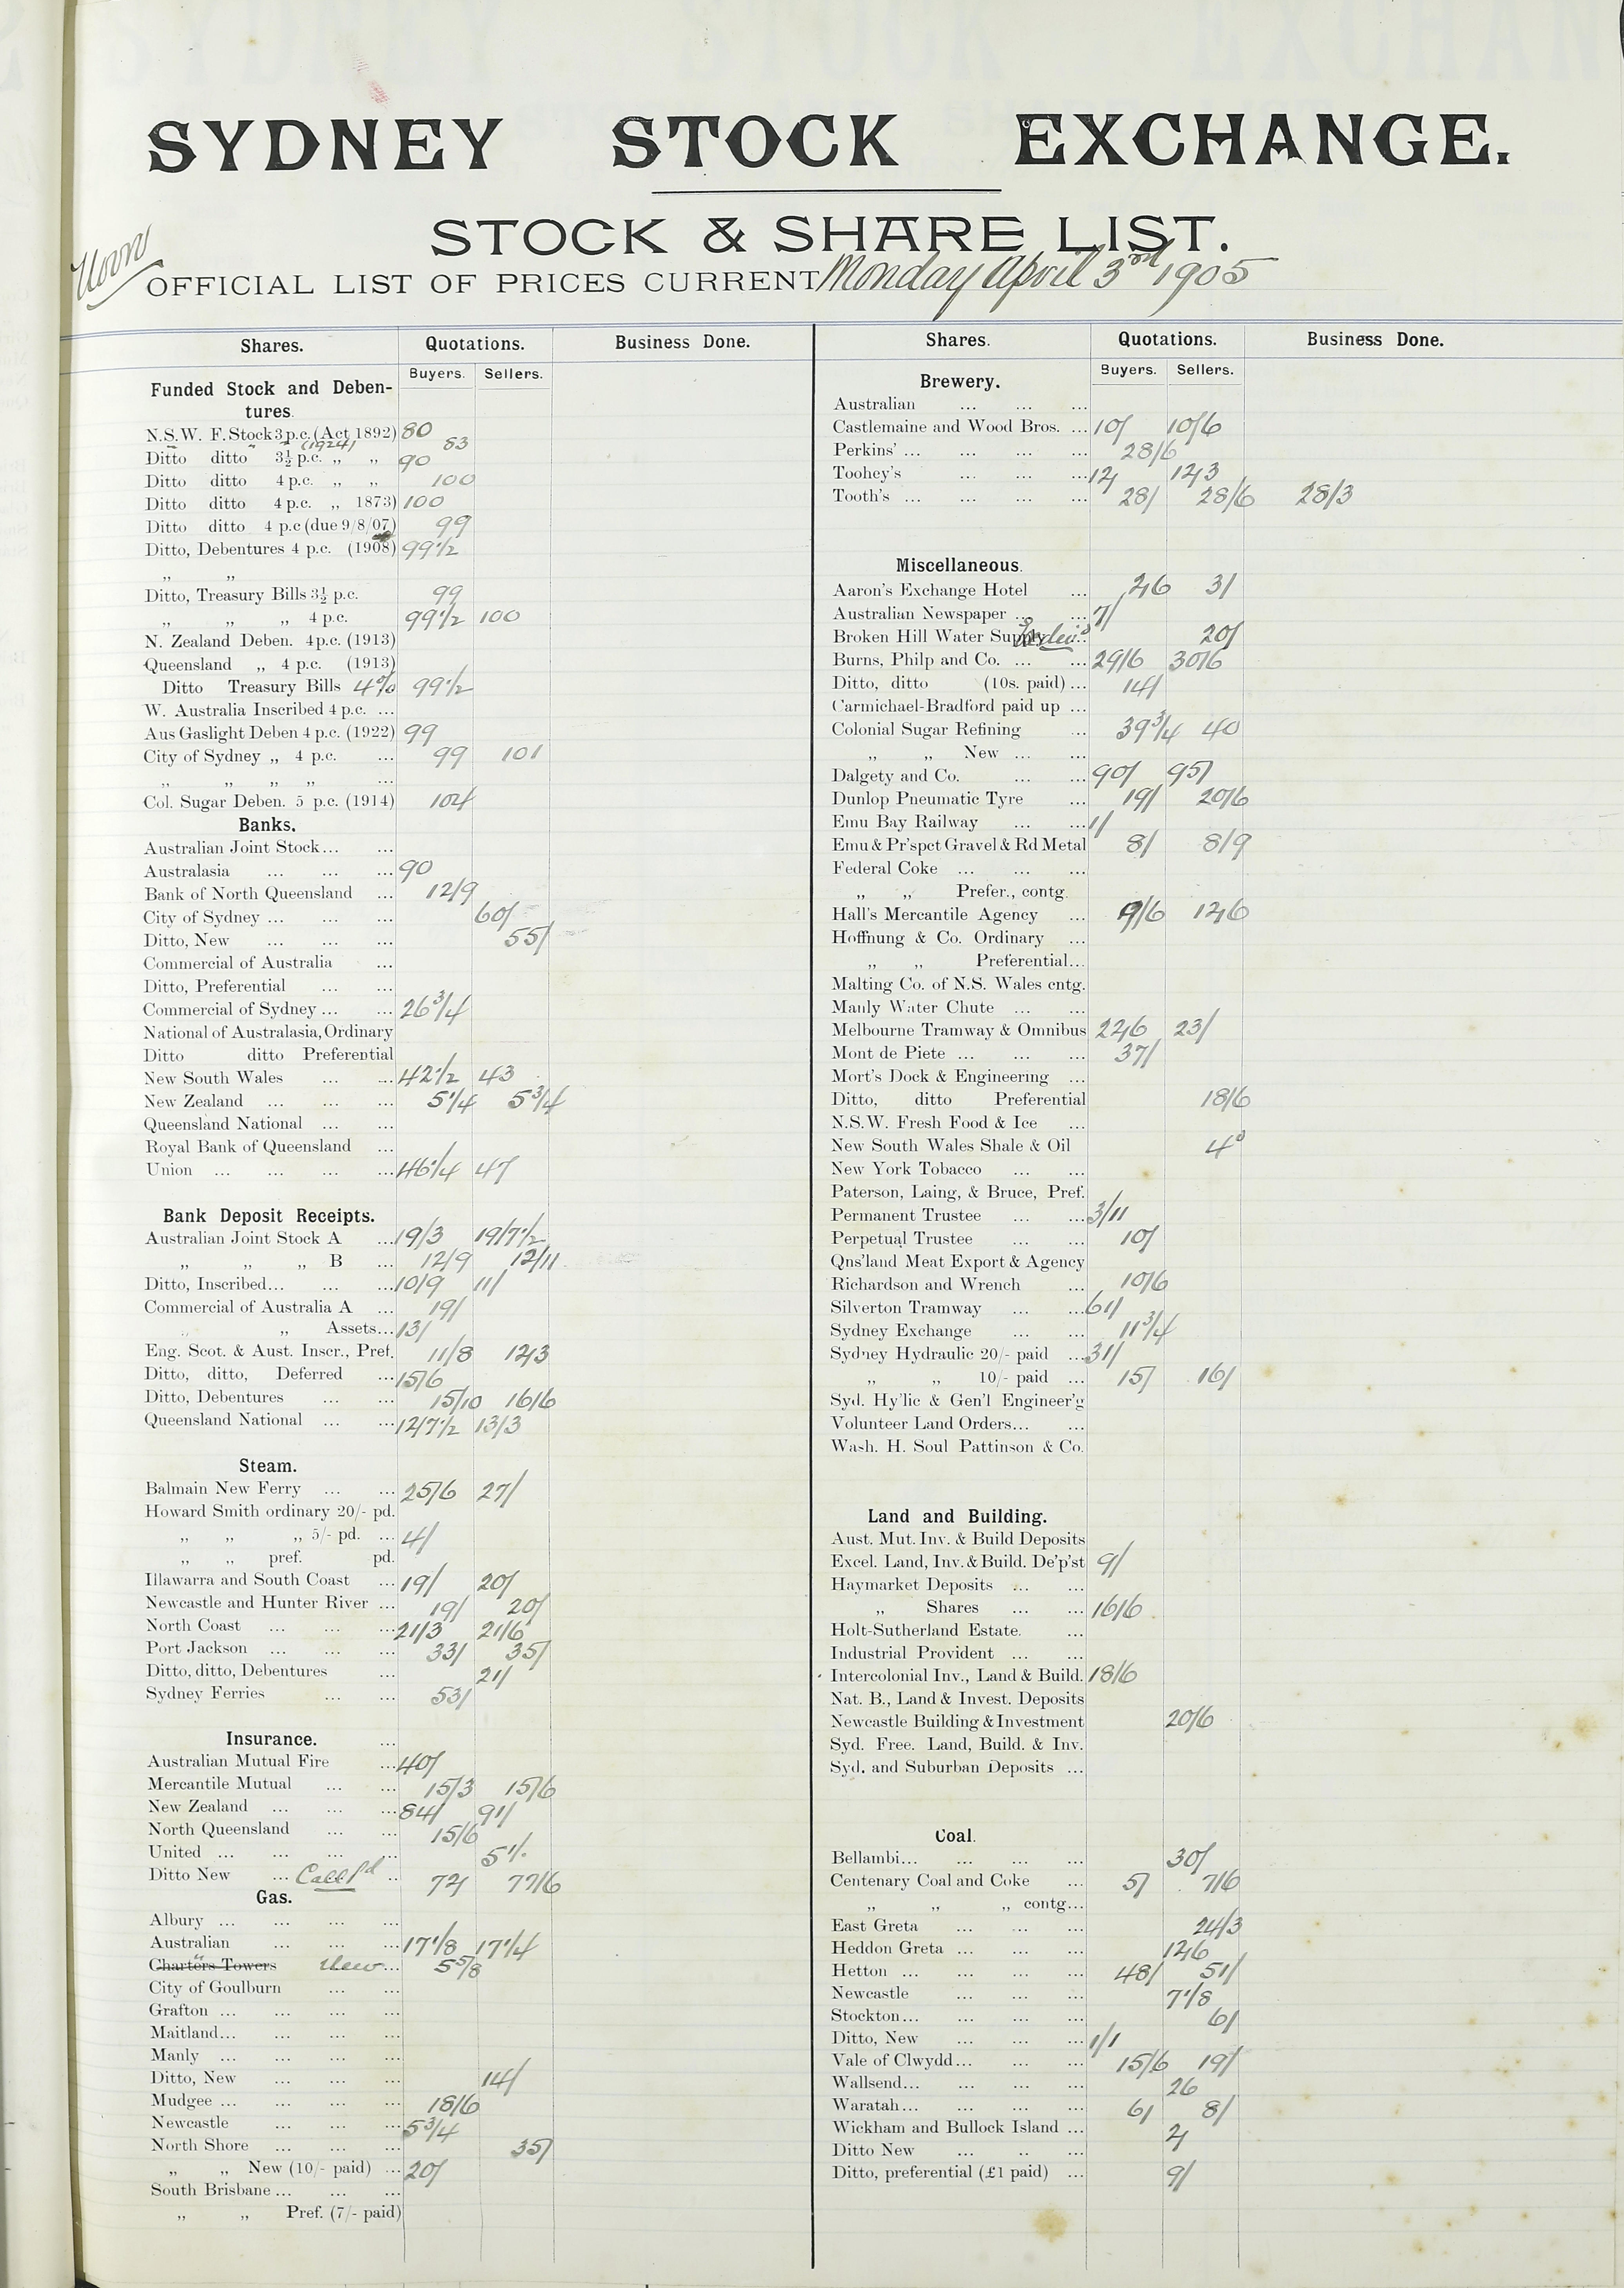 SYDNEY STOCK EXCHANGE.
STOCK & SHARE LIST.
Noon
OFFICIAL LIST OF PRICES CURRENT Monday April 3rd 1905
Shares. Quotations. Business Done.
Buyers. Sellers.
Funded Stock and Deben-
tures.
N.S.W. F. Stock 3 p.c. (Act 1892) 80
" " " (1924) 83
Ditto ditto 3½ p.c. „ „ 90
Ditto ditto 4 p.c. „ „ 100
Ditto ditto 4 p.c. „ 1873) 100
Ditto ditto 4 p.c (due 9/8/07) 99
Ditto, Debentures 4 p.c. (1908) 99½
„ „
Ditto, Treasury Bills 3½ p.c. 99
„ „ „ 4 p.c. 99½ 100
N. Zealand Deben. 4 p.c. (1913)
Queensland „ 4 p.c. (1913)
Ditto Treasury Bills 4% 99½
W. Australia Inscribed 4 p.c. ...
Aus Gaslight Deben 4 p.c. (1922) 99
City of Sydney „ 4 p.c. ... 99 101
„ „ „ „ ...
Col. Sugar Deben. 5 p.c. (1914) 104
Banks.
Australian Joint Stock... ...
Australasia ... ... ... 90
Bank of North Queensland ... 12/9
City of Sydney ... ... ... 60/
Ditto, New ... ... ... 55/
Commercial of Australia ...
Ditto, Preferential ... ...
Commercial of Sydney ... ... 26¾
National of Australasia, Ordinary
Ditto ditto Preferential
New South Wales ... ... 42½ 43
New Zealand ... ... ... 5¼ 5¾
Queensland National ... ...
Royal Bank of Queensland ...
Union ... ... ... ... 46¼ 47
Bank Deposit Receipts.
Australian Joint Stock A ... 19/3 19/7½
„ „ „ B ... 12/9 12/11
Ditto, Inscribed... ... ... 10/9 11/
Commercial of Australia A ... 19/
„ „ Assets... 13/
Eng. Scot. & Aust. Inscr., Pref. 11/8 12/3
Ditto, ditto, Deferred ... 15/6
Ditto, Debentures ... ... 15/10 16/6
Queensland National ... ... 12/7½ 13/3
Steam.
Balmain New Ferry ... ... 25/6 27/
Howard Smith ordinary 20/- pd.
„ „ „ 5/- pd. ... 4/
„ „ pref. pd.
Illawarra and South Coast ... 19/ 20/
Newcastle and Hunter River ... 19/ 20/
North Coast ... ... ... 21/3 21/6
Port Jackson ... ... ... 33/ 35/
Ditto, ditto, Debentures ... 21/
Sydney Ferries ... ... 53/
Insurance. ...
Australian Mutual Fire ... 40/
Mercantile Mutual ... ... 15/3 15/6
New Zealand ... ... ... 84/ 91/
North Queensland ... ... 15/6
United ... ... ... ...
Ditto New ... Call Pd .. 77/6
Gas.
Albury ... ... ... ...
Australian ... ... ... 17⅛ 17¼
Charters Towers " New ... 5⅝
City of Goulburn ... ...
Grafton ... ... ... ...
Maitland... ... ... ...
Manly ... ... ... ...
Ditto, New ... ... ... 14/
Mudgee ... ... ... ... 18/6
Newcastle ... ... ... 5¾
North Shore ... ... ... 35/
„ „ New (10/- paid) ... 20/
South Brisbane ... ... ...
„ „ Pref. (7/- paid)
Shares. Quotations. Business Done.
Buyers. Sellers.
Brewery.
Australian ... ... ...
Castlemaine and Wood Bros. ... 10/ 10/6
Perkins' ... ... ... ... 28/6
Toohey's ... ... ... 12/ 12/3
Tooth's ... ... ... ... 28/ 28/6 28/3
Miscellaneous.
Aaron's Exchange Hotel ... 26 31/
Australian Newspaper ... ... 7/
Broken Hill Water Supply 20/
Burns, Philp and Co. ... ... 29/6 30/6
Ditto, ditto (10s. paid) ... 14/
Carmichael-Bradford paid up ...
Colonial Sugar Refining ... 39¾ 40
„ „ New ... ...
Dalgety and Co. ... ... 90/ 95/
Dunlop Pneumatic Tyre ... 19/ 20/6
Emu Bay Railway ... ... 1/
Emu & Pr'spct Gravel & Rd Metal 8/ 8/9
Federal Coke ... ... ...
„ „ Prefer., contg.
Hall's Mercantile Agency ... 9/6 12/6
Hoffnung & Co. Ordinary ...
„ „ Preferential...
Malting Co. of N.S. Wales cntg.
Manly Water Chute ... ...
Melbourne Tramway & Omnibus 22/6 23/
Mont de Piete ... ... ... 37/
Mort's Dock & Engineering ...
Ditto, ditto Preferential 18/6
N.S.W. Fresh Food & Ice ...
New South Wales Shale & Oil 4d
New York Tobacco ... ...
Paterson, Laing, & Bruce, Pref.
Permanent Trustee ... ... 3/11
Perpetual Trustee ... ... 10/
Qns'land Meat Export & Agency
Richardson and Wrench ... 10/6
Silverton Tramway ... ... 61/
Sydney Exchange ... ... 11¾
Sydney Hydraulic 20/- paid ... 31/
„ „ 10/- paid ... 15/ 16/
Syd. Hy'lic & Gen'l Engineer'g
Volunteer Land Orders... ...
Wash. H. Soul Pattinson & Co.
Land and Building.
Aust. Mut. Inv. & Build Deposits
Excel. Land, Inv. & Build. De'p'st 9/
Haymarket Deposits ... ...
„ Shares ... ... 16/6
Holt-Sutherland Estate. ...
Industrial Provident ... ...
Intercolonial Inv., Land & Build. 18/6
Nat. B., Land & Invest. Deposits
Newcastle Building & Investment 20/6
Syd. Free. Land, Build. & Inv.
Syd. and Suburban Deposits ...
Coal.
Bellambi... ... ... ... 30/
Centenary Coal and Coke ... 5/ 7/6
„ „ „ contg...
East Greta ... ... ... 24/3
Heddon Greta ... ... ... 12/6
Hetton ... ... ... ... 48/ 51/
Newcastle ... ... ... 7⅛
Stockton... ... ... ... 6/
Ditto, New ... ... ... 1/1
Vale of Clwydd... ... ... 15/6 19/
Wallsend... ... ... ... 26
Waratah... ... ... ... 6/ 8/
Wickham and Bullock Island ... 2/
Ditto New ... .. ...
Ditto, preferential (£1 paid) ... 9/